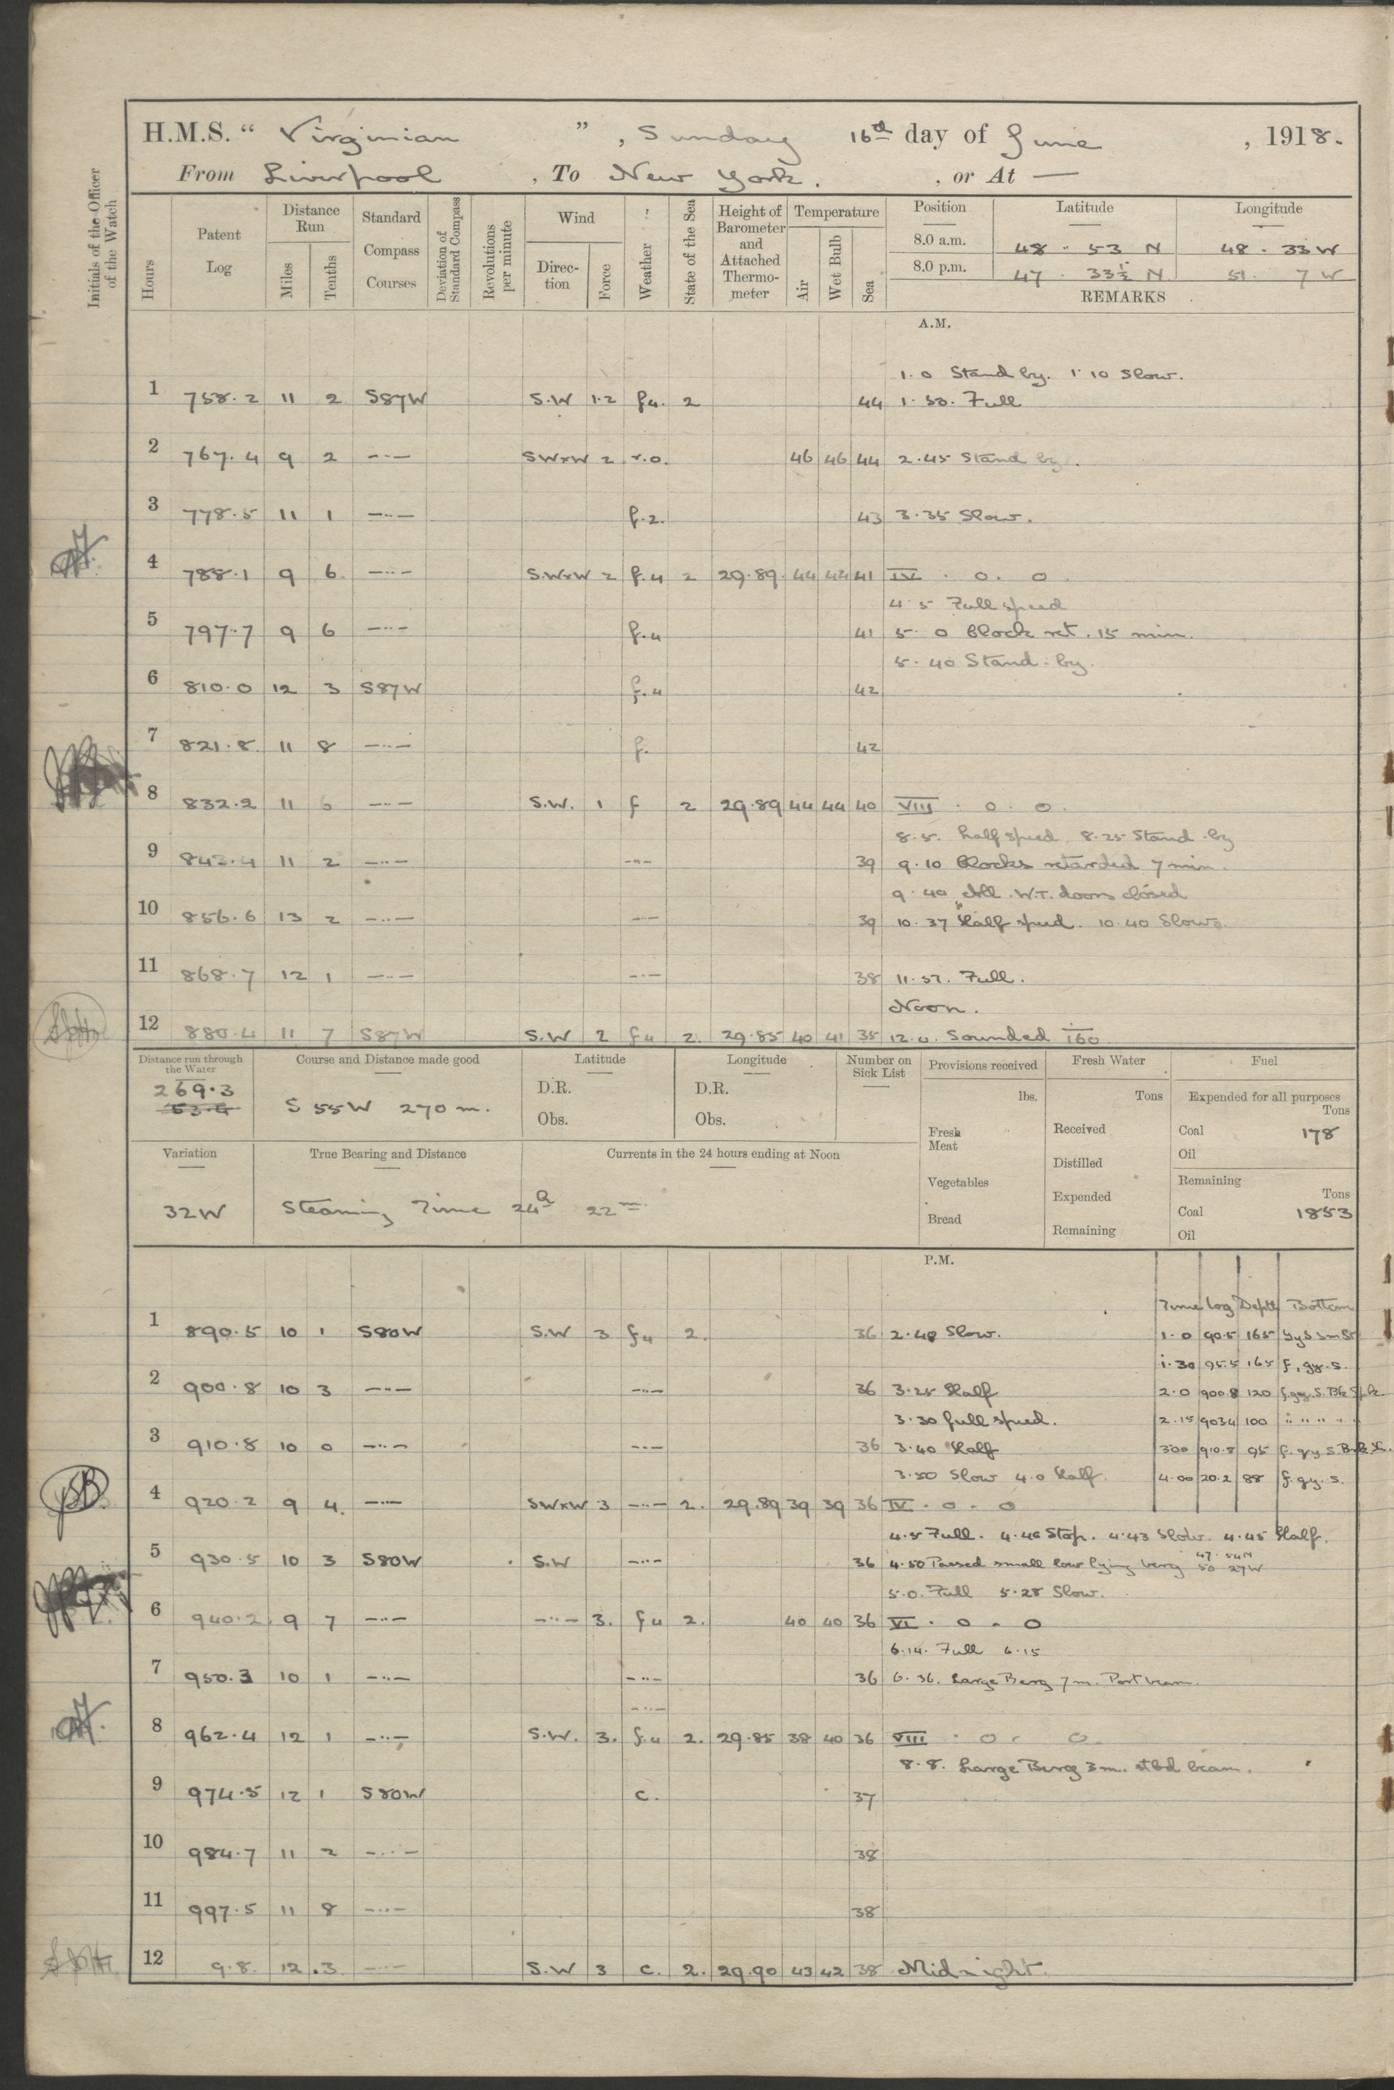 H.M.S. " Virginian ", Sunday 16th day of June, 1918.
From Liverpool, To New York., or At —
Initials of the Officer of the Watch
Hours
Patent Log
Distance Run
Miles
Tenths
Standard Compass Courses
Deviation of Standard Compass
Revolutions per minute
Wind
Direction
Force
Weather
State of the Sea
Height of Barometer and Attached Thermometer
Temperature
Air
Wet Bulb
Sea
Position Latitude Longitude
8.0 a.m. 48 - 53 N 48 - 33 W
8.0 p.m. 47 - 33½ N 51 - 7 W
REMARKS
A.M.
1.0 Stand by. 1.10 Slow.
1 758.2 11 2 S87W S.W 1.2 f4. 2 44 1.50. Full
2 767.4 9 2 —··— SWxW 2 r.o. 46 46 44 2.45 Stand by.
3 778.5 11 1 —··— f.2. 43 3.35 Slow.
4 788.1 9 6 —··— S.WxW 2 f.4 2 29.89 44 44 41 IV . o. o
4.5 Full speed
5 797.7 9 6 —··— f.4 41 5.0 Clock ret. 15 min.
5.40 Stand-by.
6 810.0 12 3 S87W f.4 42
7 821.8 11 8 —··— f. 42
8 832.2 11 —··— S.W. 1 f 2 29.89 44 44 40 VIII . o. o.
8.5. half speed 8.25 Stand-by
9 843.4 11 2 —··— —··— 39 9.10 Clocks retarded 7 min.
9.40 All W.T. doors closed
10 856.6 13 2 —··— —··— 39 10.37 Half speed. 10.40 Slow.
11 868.7 12 1 —··— —··— 38 11.57. Full.
Noon.
12 880.4 11 7 S87W S.W 2 f4 2. 29.85 40 41 35 12.0. Sounded 160
Distance run through the Water
269.3
Course and Distance made good
S 55W 270 m.
Latitude
D.R.
Obs.
Longitude
D.R.
Obs.
Number on Sick List
Provisions received
lbs.
Fresh Meat
Vegetables
Bread
Fresh Water
Tons
Received
Distilled
Expended
Remaining
Fuel
Expended for all purposes
Tons
Coal 178
Oil
Remaining
Tons
Coal 1853
Oil
Variation
32W
True Bearing and Distance
Currents in the 24 hours ending at Noon
Steaming Time 24h 22m
P.M.
Time Log Depth Bottom
1 890.5 10 1 S80W S.W 3 f4 2. 36 2.48 Slow. 1.0 90.5 165
1.30 95.5 165 f. gy. s.
2 900.8 10 3 —··— —··— 36 3.25 Half 2.0 900.8 120 f.gy.S. Blk Spk
3.30 full speed. 2.15 9034 100 " " " " "
3 910.8 10 0 —··— —··— 36 3.40 Half 300 910.8 95 f. gy S.
3.50 Slow 4.0 Half. 4.00 20.2 88 f. gy. s.
4 920.2 9 4. —··— SWxW 3 —··— 2. 29.89 39 39 36 IV . o - o
4.5 Full. 4.40 Stop. 4.43 Slow. 4.45 Half.
5 930.5 10 3 S80W S.W —··— 36 4.50 Passed small low lying berg 47.54N 50 27W
5.0. Full 5.28 Slow.
6 940.2 9 7 —··— —··— 3. f4 2. 40 40 36 VI . o - o
6.14. Full 6.15
7 950.3 10 1 —··— —··— 36 6.36. Large Berg 7 m. Port beam.
—··—
8 962.4 12 1 —··— S.W. 3. f.4 2. 29.85 38 40 36 VIII . o . o.
8.8. Large Berg 3 m. stbd beam.
9 974.5 12 1 S80W c. 37
10 984.7 11 2 —··— 38
11 997.5 11 8 —··— 38
12 9.8. 12 .3 —··— S.W 3 c. 2. 29.90 43 42 38 Midnight.